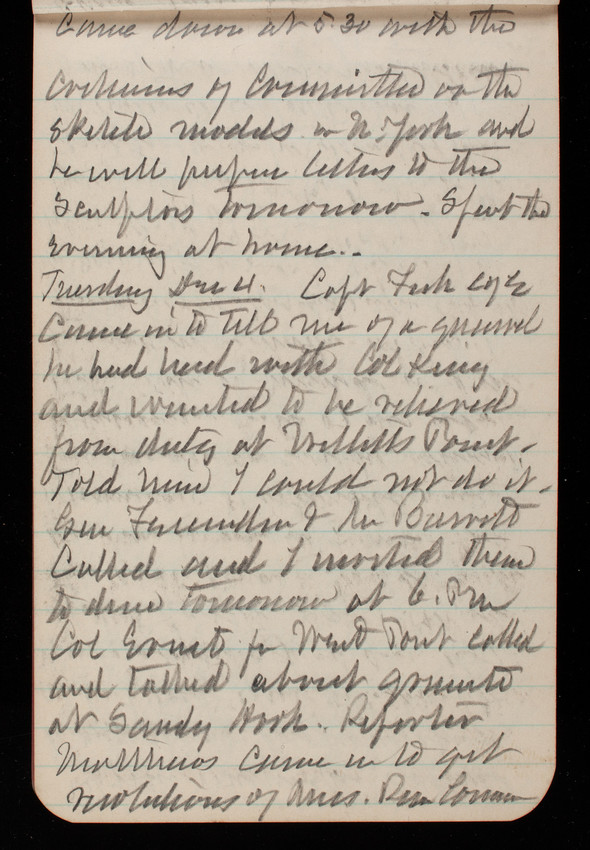 Came down at 5.30 with the
criticisms of Committee on the
Sketch models in N. York and
he will prepare letters to the
Sculptors tomorrow. Spent the
evening at home..
Tuesday Dec 4. Capt
Came in to tell me of a quarrel
he had had with Col King
and wanted to be relieved
from duty at Willetts Point.
Told him I could not do it.
Gen & Mr
Called and I invited them
to dine tomorrow at 6. P.m
Col Ernst fr West Point called
and talked about granite
at Sandy Hook. Reporter
Matthews came in to get
resolutions of